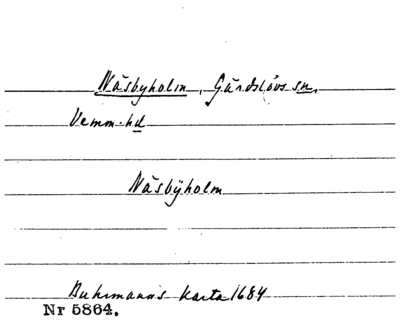 Näsbyholm, Gärdslövs sn.
Vemm. hd
Näsbÿholm
Buhrmann's karta 1684
Nr 5864.